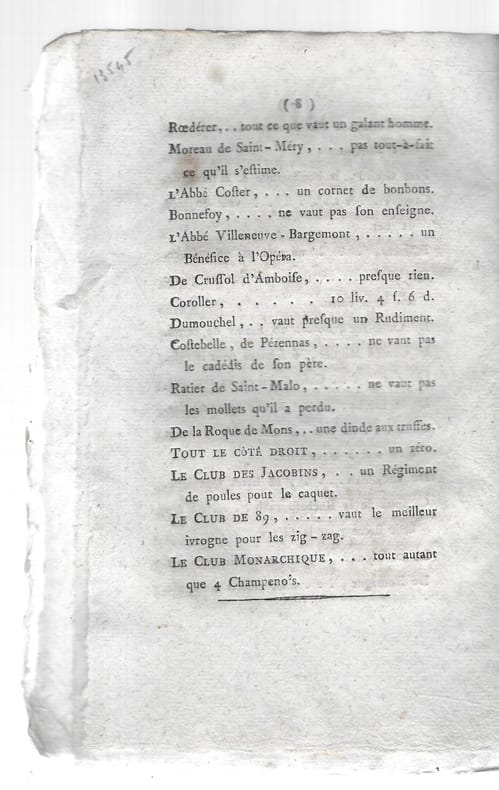 13545
( 8 )
Rœdérer, . . tout ce que vaut un galant homme.
Moreau de Saint-Méry, . . . pas tout-à-fait
ce qu'il s'eſtime.
L'Abbé Coſter, . . . un cornet de bonbons.
Bonnefoy, . . . . ne vaut pas ſon enſeigne.
L'Abbé Villeneuve-Bargemont, . . . . . un
Bénéfice à l'Opéra.
De Cruſſol d'Amboiſe, . . . . preſque rien.
Coroller, . . . . . 10 liv. 4 ſ. 6 d.
Dumouchel, . . vaut preſque un Rudiment.
Coſtebelle, de Pézennas, . . . . ne vaut pas
le cadédis de ſon père.
Ratier de Saint-Malo, . . . . . ne vaut pas
les mollets qu'il a perdu.
De la Roque de Mons, . . une dinde aux truffes.
TOUT LE CÔTÉ DROIT, . . . . . . un zéro.
LE CLUB DES JACOBINS, . . un Régiment
de poules pour le caquet.
LE CLUB DE 89, . . . . . vaut le meilleur
ivrogne pour les zig-zag.
LE CLUB MONARCHIQUE, . . . tout autant
que 4 Champeno's.